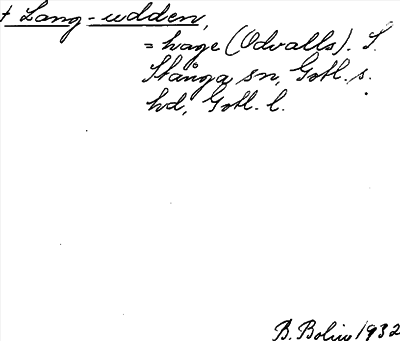 † Lang-udden,
= hage (Odvalls). I.
Stånga sn, Gotl. s.
hd, Gotl. l.
B. Bolin 1932